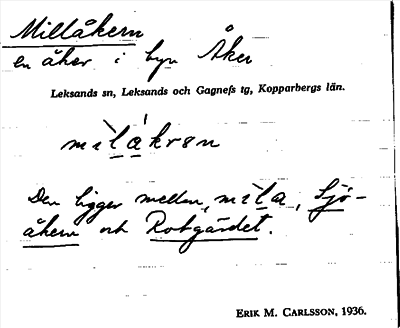 Millåkern
en åker i byn Åker
Leksands sn, Leksands och Gagnefs tg, Kopparbergs län.
mìlákrən
Den ligger mellan mìla, Sjö-
åkern och Rotgärdet.
ERIK M. CARLSSON, 1936.